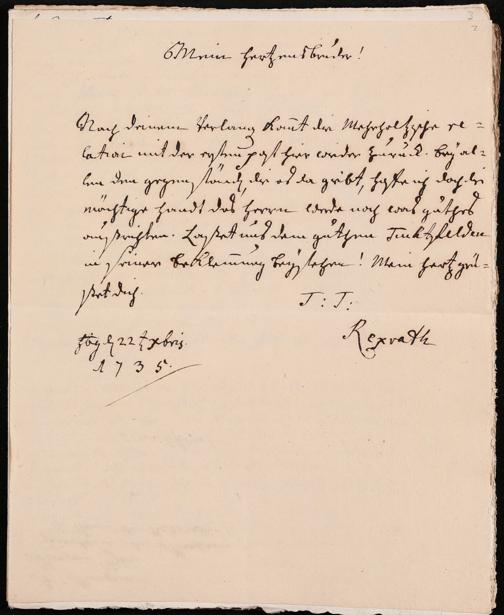 Mein hertzensbruder!
Nach deinem Verlang komt die Meherholtzische re-
lation mit der ersten post hier wieder zurück. bey al-
len den gegenständ, die es da gibt, hoffe ich doch die
mächtige handt des herrn werde noch was guthes
außrichten. Laßet uns dem guthen
in seiner beklemmung beystehen! Mein hertz grü-
ßet dich.
T: T:
Rexrath
d 22 t xbris
1735.